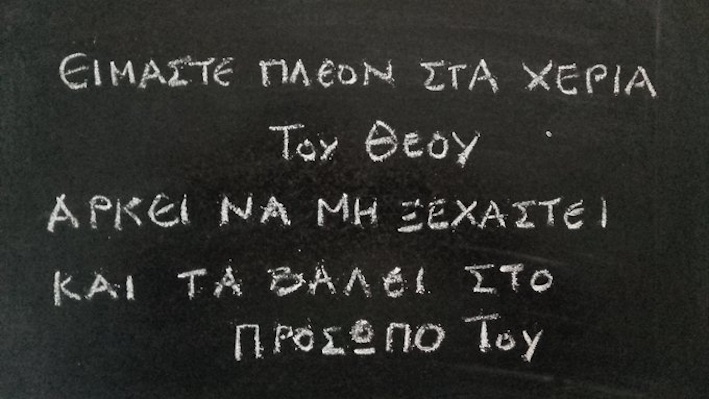 ΕΙΜΑΣΤΕ ΠΛΕΟΝ ΣΤΑ ΧΕΡΙΑ
Του Θεου
ΑΡΚΕΙ ΝΑ ΜΗ ΞΕΧΑΣΤΕΙ
ΚΑΙ ΤΑ ΒΑΛΕΙ ΣΤΟ
ΠΡΟΣΩΠΟ Του